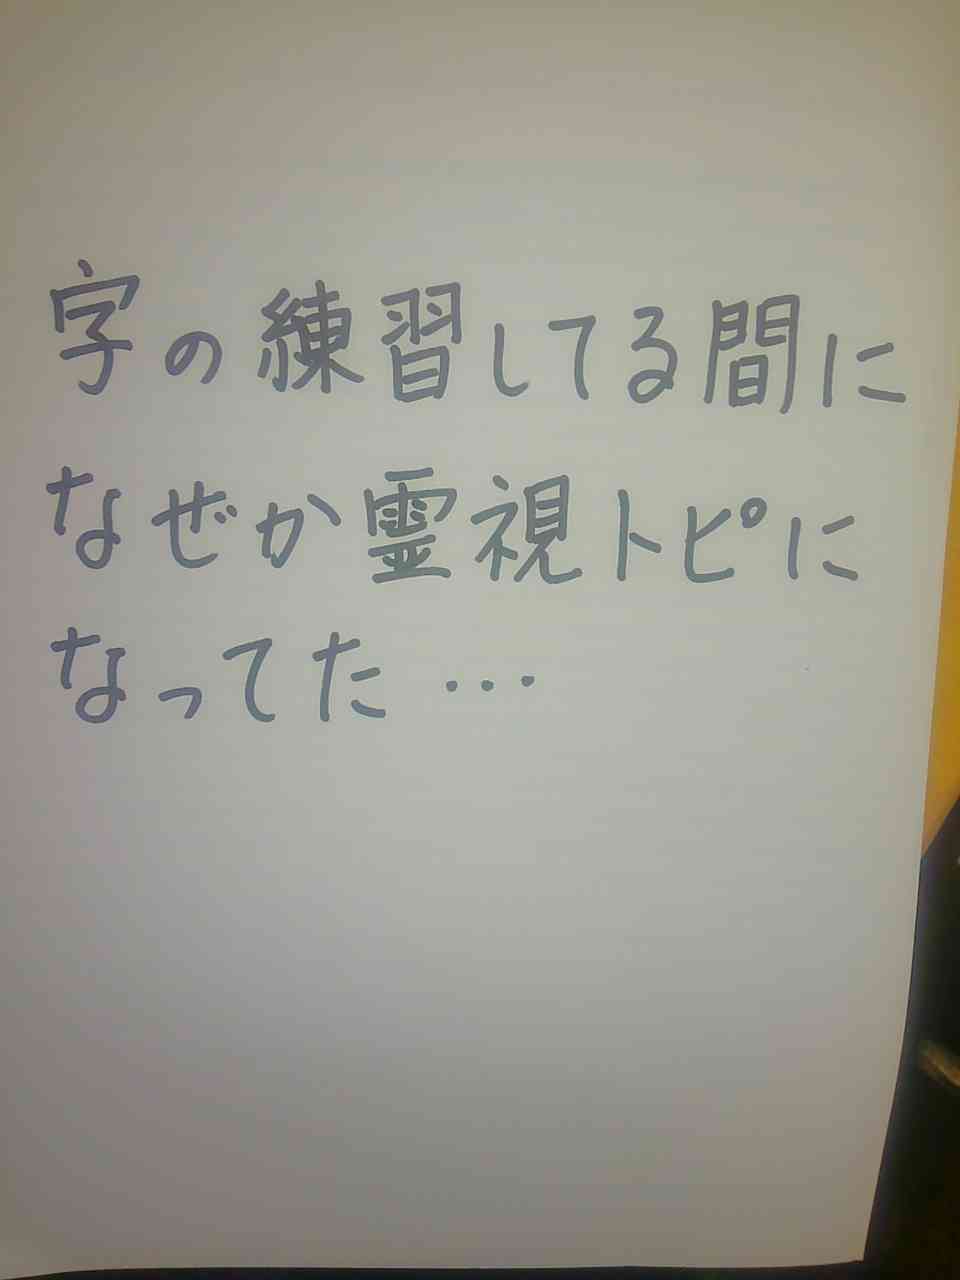 字の練習してる間に
なぜか霊視トピに
なってた…